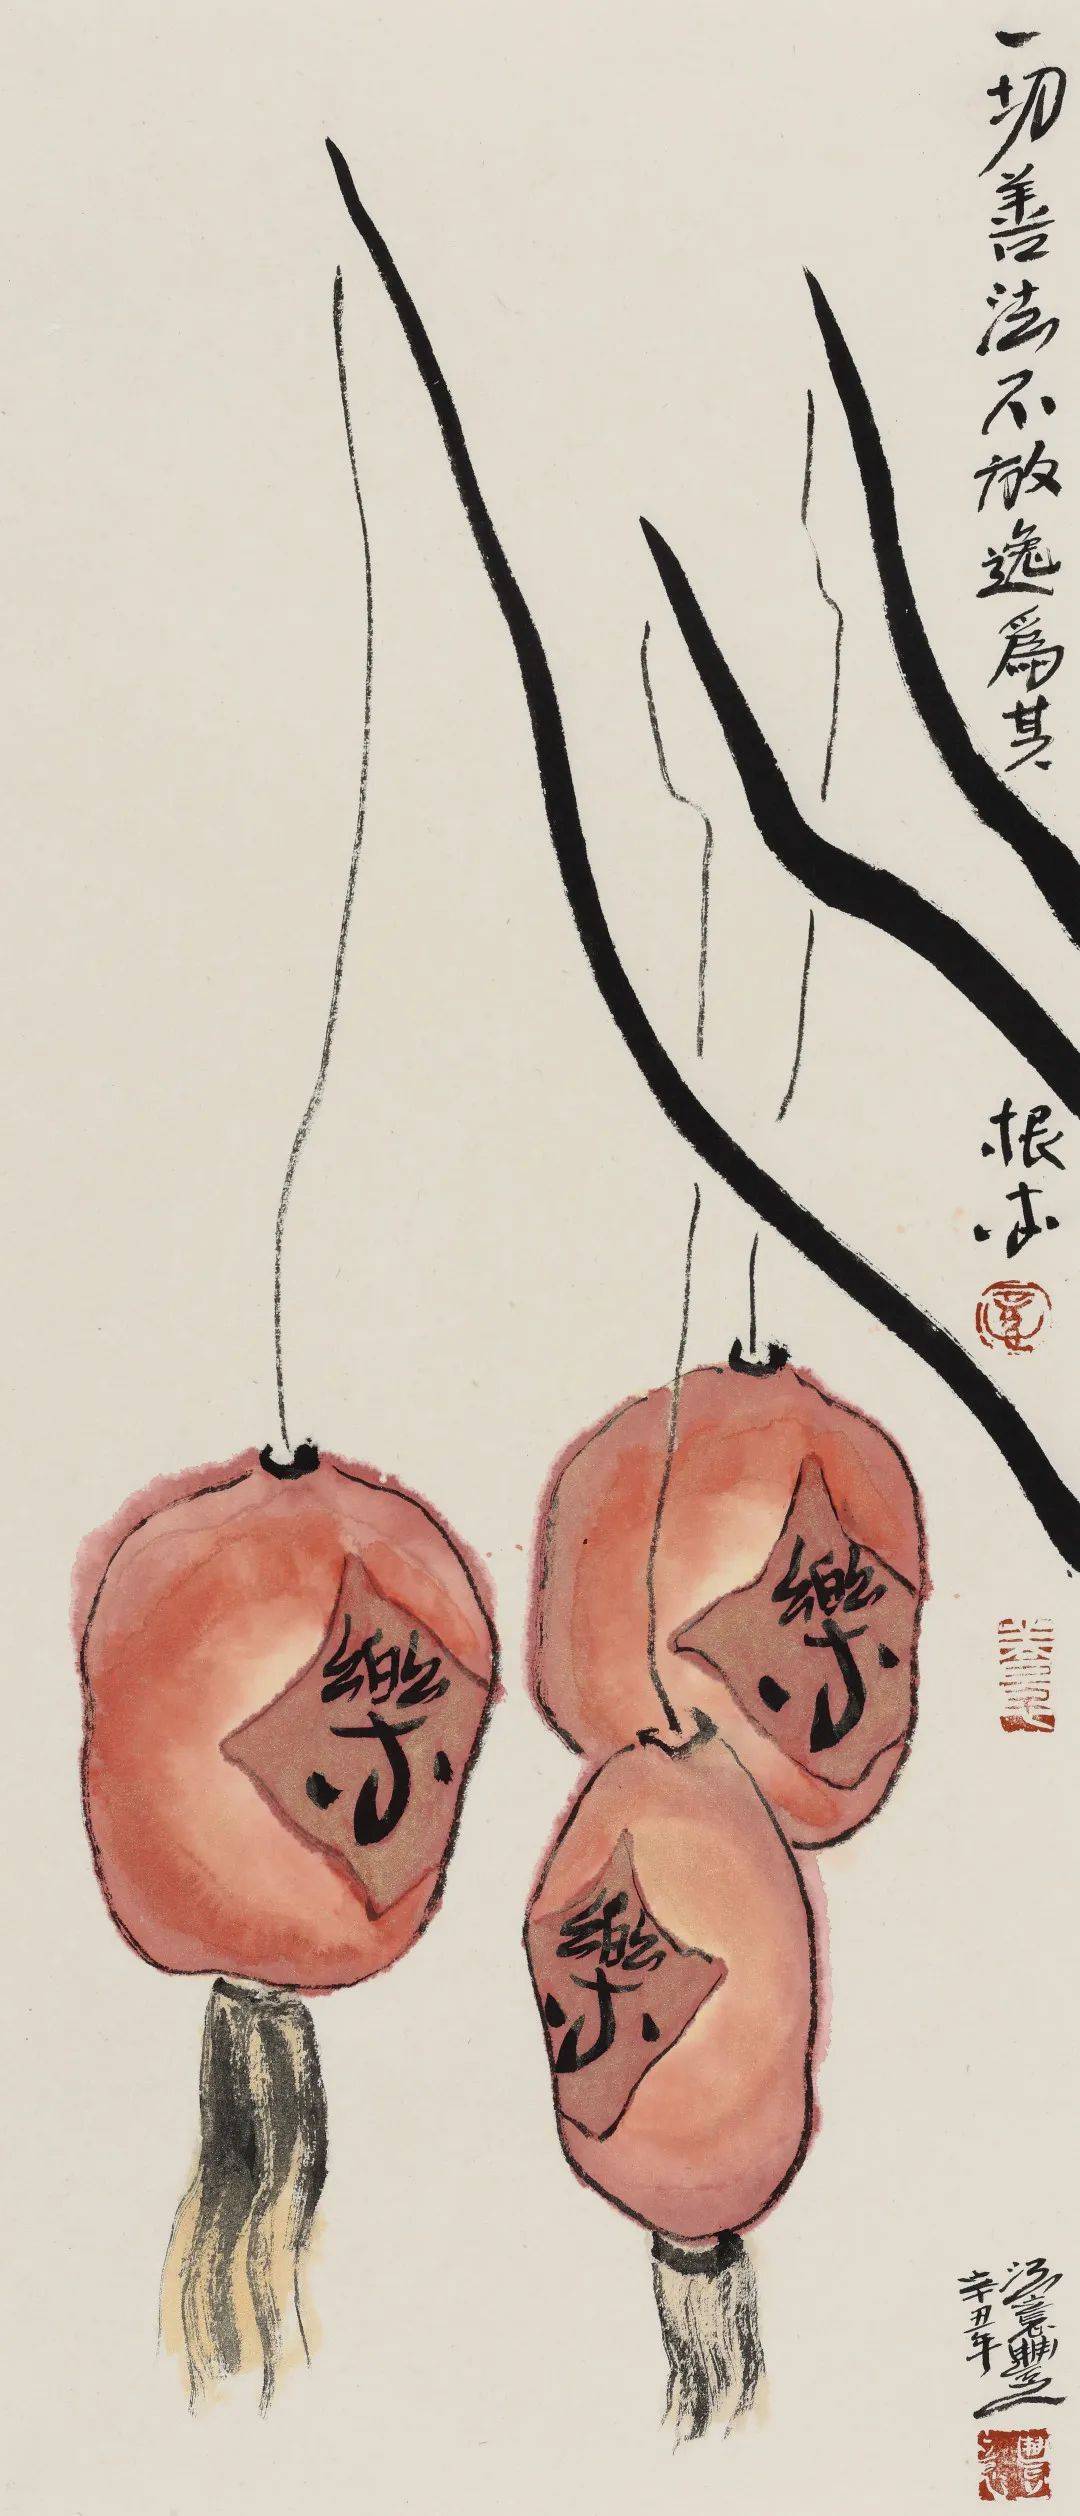 一切善法不放逸爲其
根本
樂
樂
樂
辛丑年